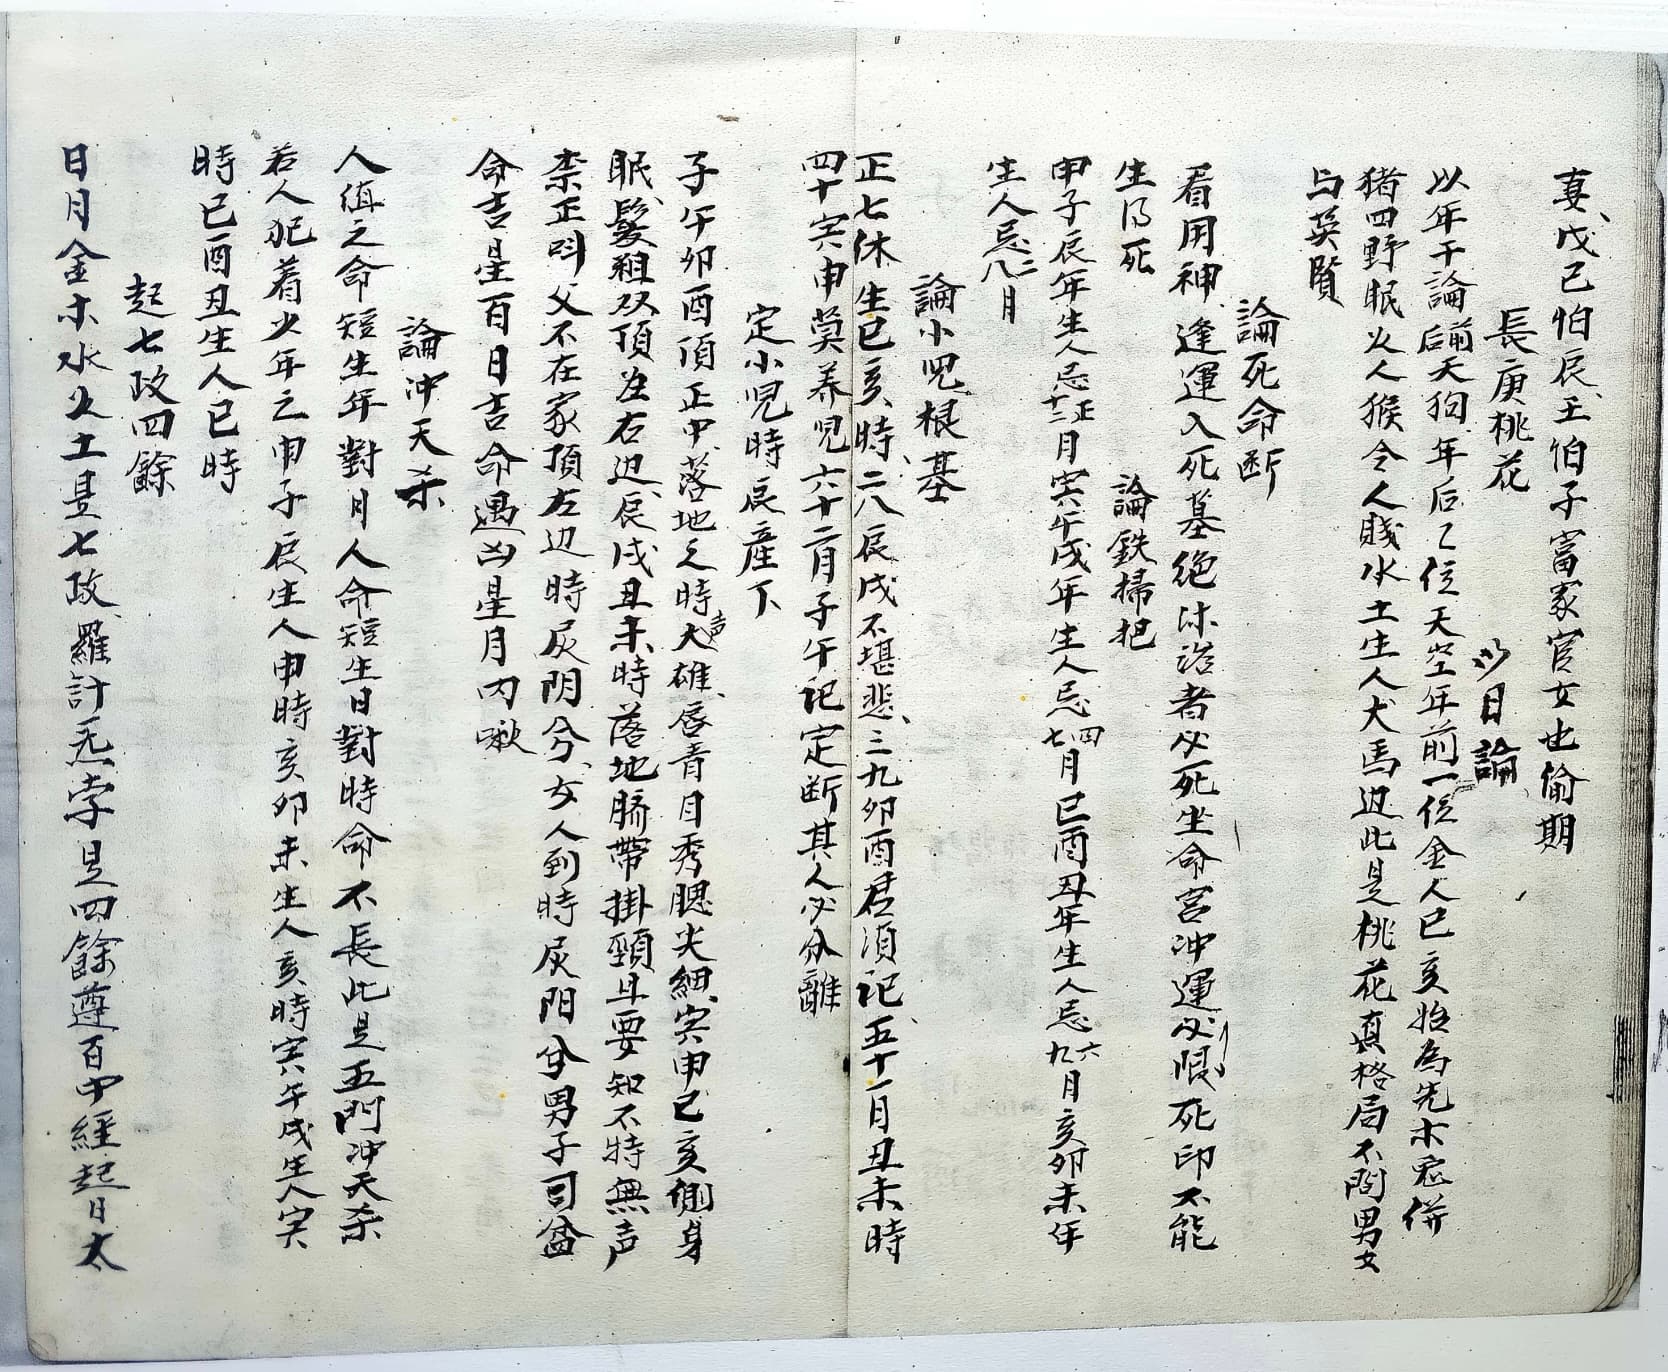 妻、戊己怕辰、壬怕子富家官女也偷期
長庚桃花　以日論
以年干論后前天狗年后乙位天空年前一位金人巳亥始為先木忌併
猪四野眠火人猴令人賤水土生人犬馬边此是桃花真格局不問男女
与英賢
論死命断
看用神逢運入死墓絕沐浴者必死坐命宮冲運必限死印不能
生乃死
論鉄掃把
申子辰年生人忌正十二月寅午戌年生人忌四七月巳酉丑年生人忌六九月亥卯未年
生人忌二八月
論小児根基
正七休生巳亥時、二八辰戌不堪悲、三九卯酉君須记、五十一月丑未時
四十寅申莫养児六十二月子午记定断其人必分離
定小児時辰産下
子午卯酉頂正中、落地之時声大雄、唇青目秀腮尖細、寅申巳亥側身
眠、髮粗双頂左右边、辰戌丑未時落地臍帶掛頸且要知不特無声
柰正呌父不在家頂左边時辰阴分、女人到時辰阳分男子司益
命吉星百日吉命遇凶星月内啾
論冲天杀
人値之命短生年對月人命短生日對時命不長此是五門冲天杀
若人犯着少年亡申子辰生人申時亥卯未生人亥時寅午戌生人寅
時巳酉丑生人巳時
起七政四餘
日月金木水火土是七政、羅計炁孛是四餘遵百中經起日太